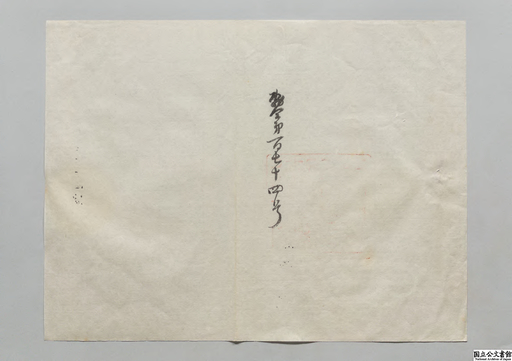 勅令第百七十四号
国立公文書館
National Archives of Japan